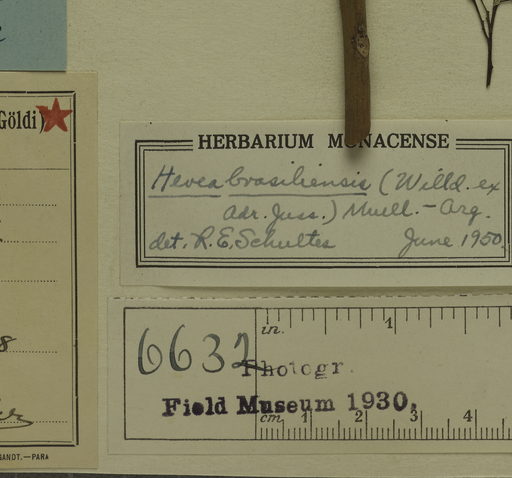 Göldi)
8
GANDT.—PARA
HERBARIUM MONACENSE
Hevea brasiliensis (Willd. ex
Adr. Juss.) Muell.-Arg.
det. R.E. Schultes June 1950.
6632
in. 1
Photogr.
Field Museum 1930.
cm 1 2 3 4